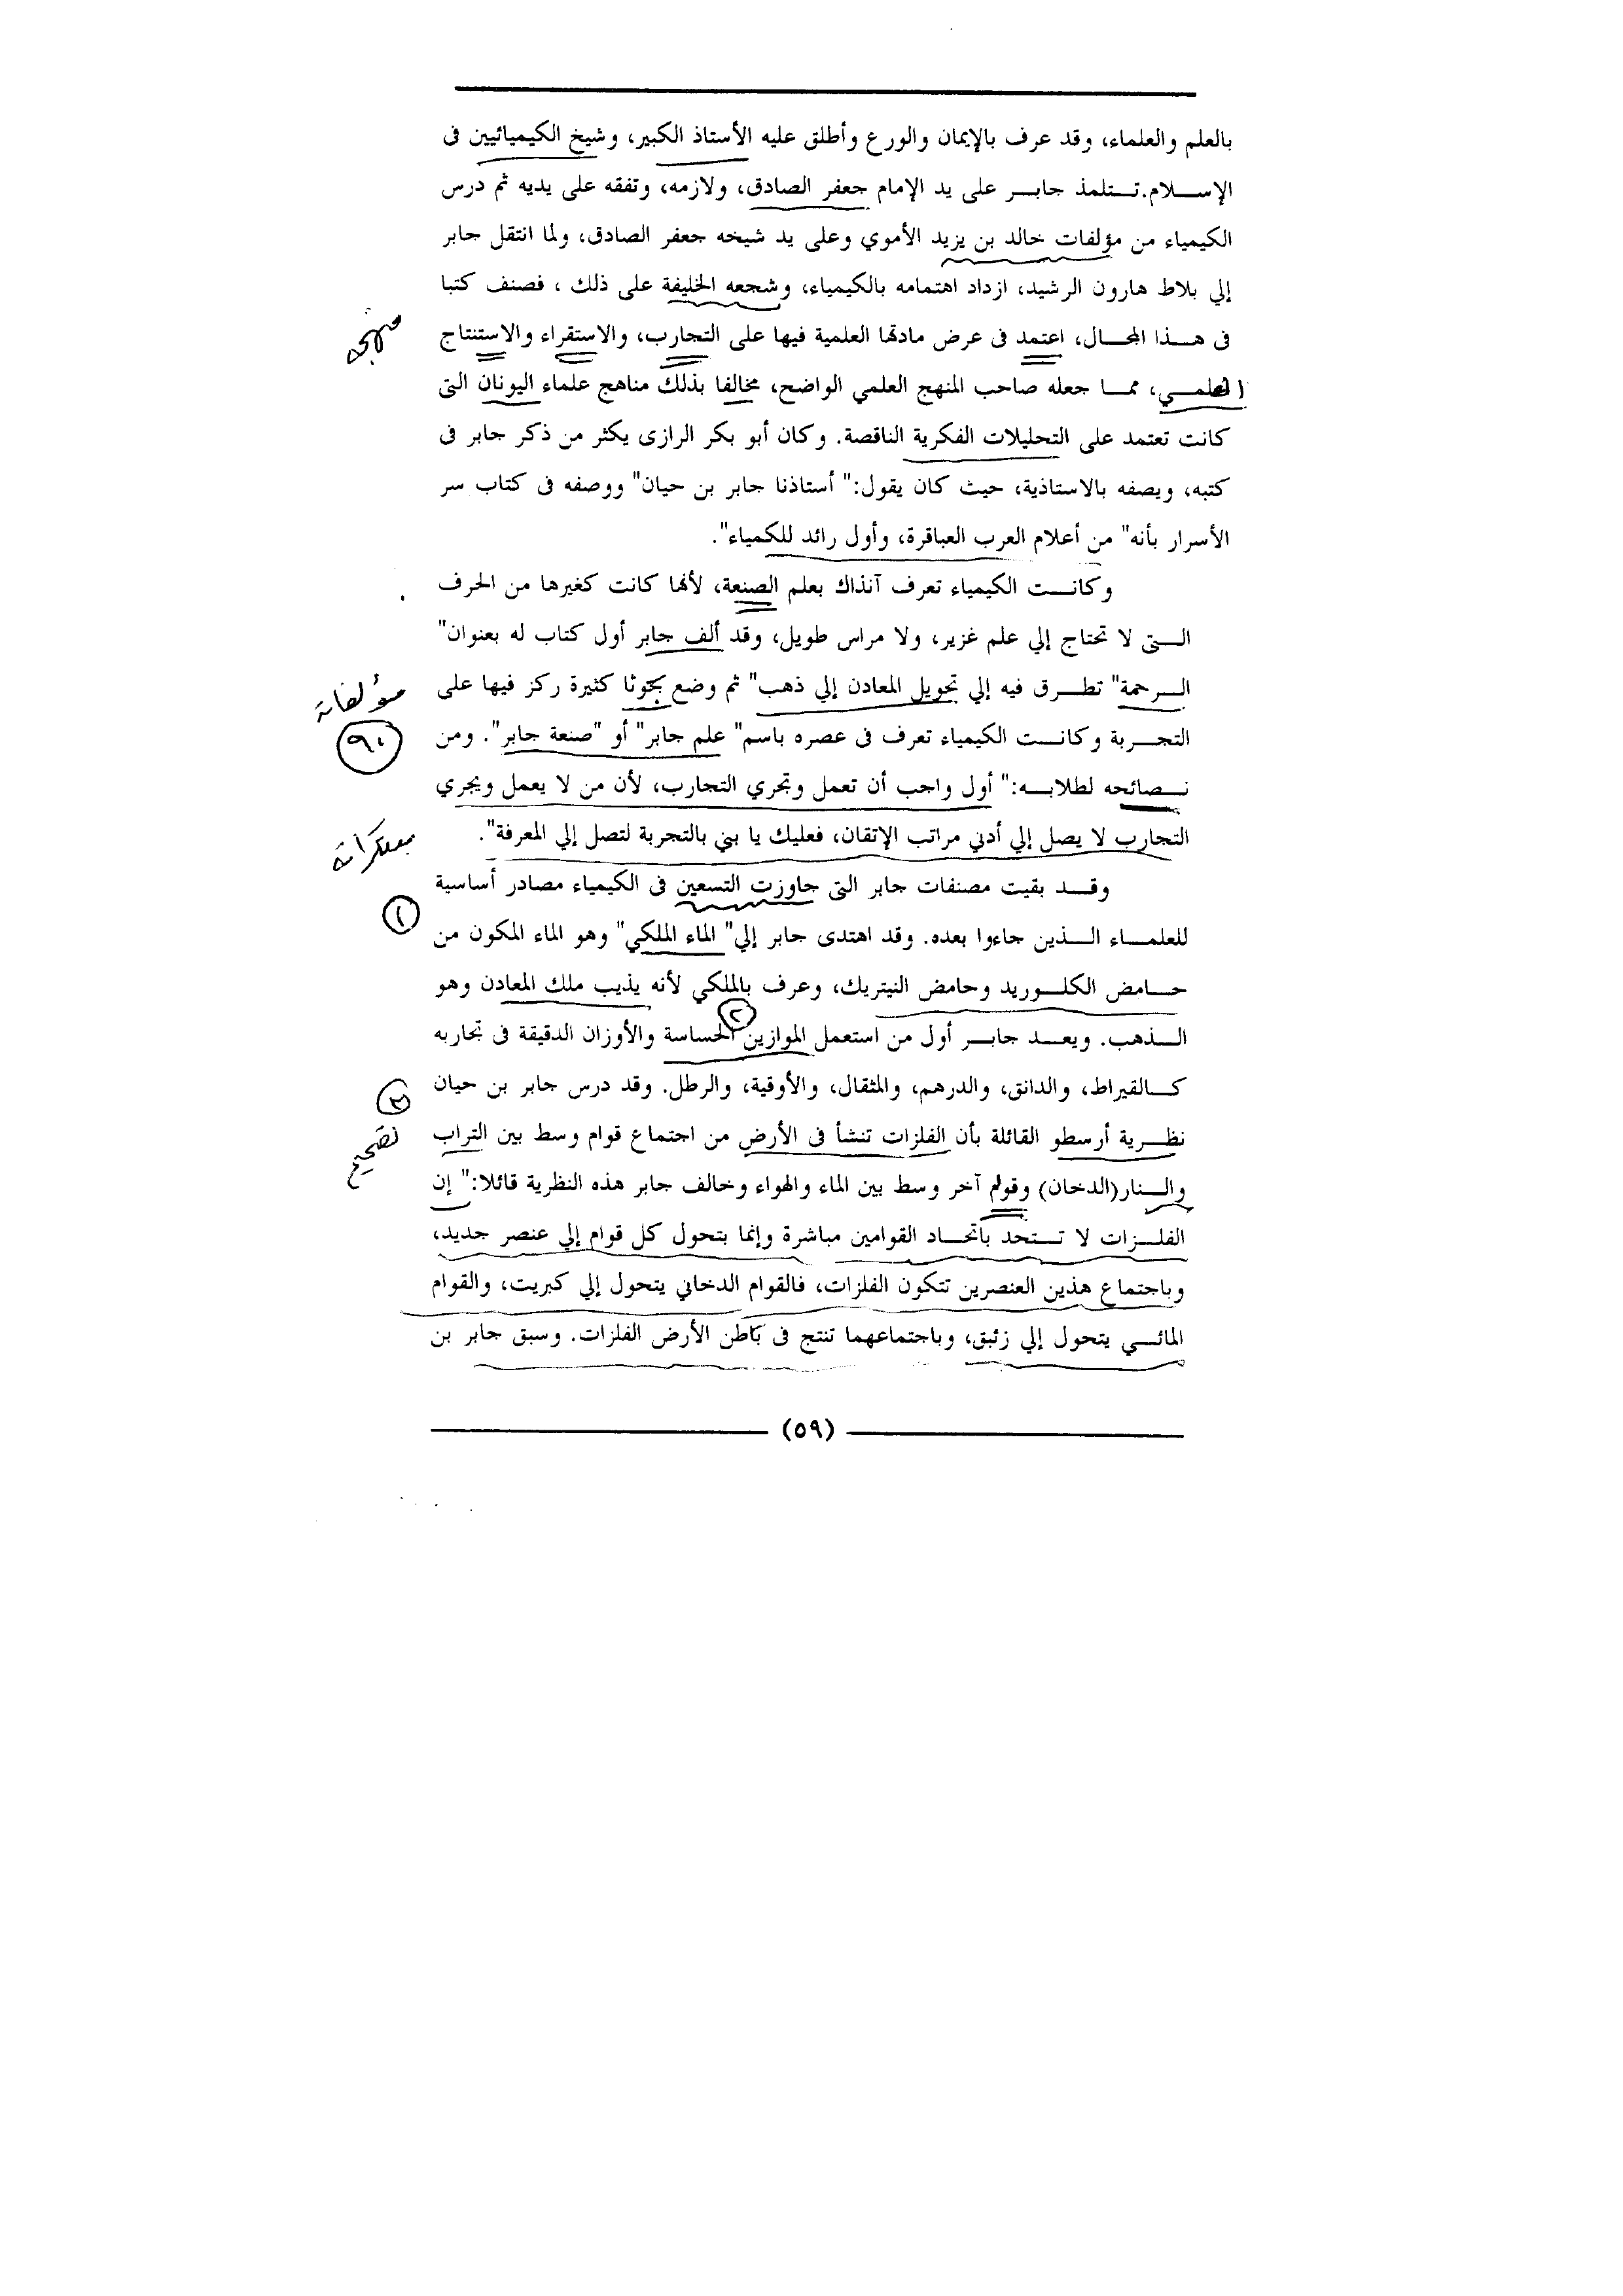 بالعلم والعلماء، وقد عرف بالإيمان والورع وأطلق عليه الأستاذ الكبير، وشيخ الكيميائيين فى
الإسلام.تتلمذ جابر على يد الإمام جعفر الصادق، ولازمه، وتفقه على يديه ثم درس
الكيمياء من مؤلفات خالد بن يزيد الأموي وعلى يد شيخه جعفر الصادق، ولما انتقل جابر
إلي بلاط هارون الرشيد، ازداد اهتمامه بالكيمياء، وشجعه الخليفة على ذلك ، فصنف كتبا
فى هذا المجال، اعتمد فى عرض مادتها العلمية فيها على التجارب، والاستقراء والاستنتاج
منهجه
العلمي، مما جعله صاحب المنهج العلمي الواضح، مخالفا بذلك مناهج علماء اليونان التى
كانت تعتمد على التحليلات الفكرية الناقصة. وكان أبو بكر الرازى يكثر من ذكر جابر فى
كتبه، ويصفه بالاستاذية، حيث كان يقول:" أستاذنا جابر بن حيان" ووصفه فى كتاب سر
الأسرار بأنه" من أعلام العرب العباقرة، وأول رائد للكمياء".
وكانت الكيمياء تعرف آنذاك بعلم الصنعة، لأنها كانت كغيرها من الحرف
التى لا تحتاج إلي علم غزير، ولا مراس طويل، وقد ألف جابر أول كتاب له بعنوان"
الرحمة" تطرق فيه إلي تحويل المعادن إلي ذهب" ثم وضع بحوثا كثيرة ركز فيها على
مؤلفاته
التجربة وكانت الكيمياء تعرف فى عصره باسم" علم جابر" أو "صنعة جابر". ومن
٩٠
نصائحه لطلابه:" أول واجب أن تعمل وتجري التجارب، لأن من لا يعمل ويجري
التجارب لا يصل إلي أدني مراتب الإتقان، فعليك يا بني بالتجربة لتصل إلي المعرفة".
وقد بقيت مصنفات جابر التى جاوزت التسعين فى الكيمياء مصادر أساسية
١
للعلماء الذين جاءوا بعده. وقد اهتدى جابر إلي" الماء الملكي" وهو الماء المكون من
حامض الكلوريد وحامض النيتريك، وعرف بالملكي لأنه يذيب ملك المعادن وهو
٢
الذهب. ويعد جابر أول من استعمل الموازين الحساسة والأوزان الدقيقة فى تجاربه
كالقيراط، والدانق، والدرهم، والمثقال، والأوقية، والرطل. وقد درس جابر بن حيان
٣
نظرية أرسطو القائلة بأن الفلزات تنشأ فى الأرض من اجتماع قوام وسط بين التراب
تصحيح
والنار(الدخان) وقوام آخر وسط بين الماء والهواء وخالف جابر هذه النظرية قائلا:" إن
الفلزات لا تتحد باتحاد القوامين مباشرة وإنما بتحول كل قوام إلي عنصر جديد،
وباجتماع هذين العنصرين تتكون الفلزات، فالقوام الدخاني يتحول إلي كبريت، والقوام
المائي يتحول إلي زئبق، وباجتماعهما تنتج فى باطن الأرض الفلزات. وسبق جابر بن
(٥٩)